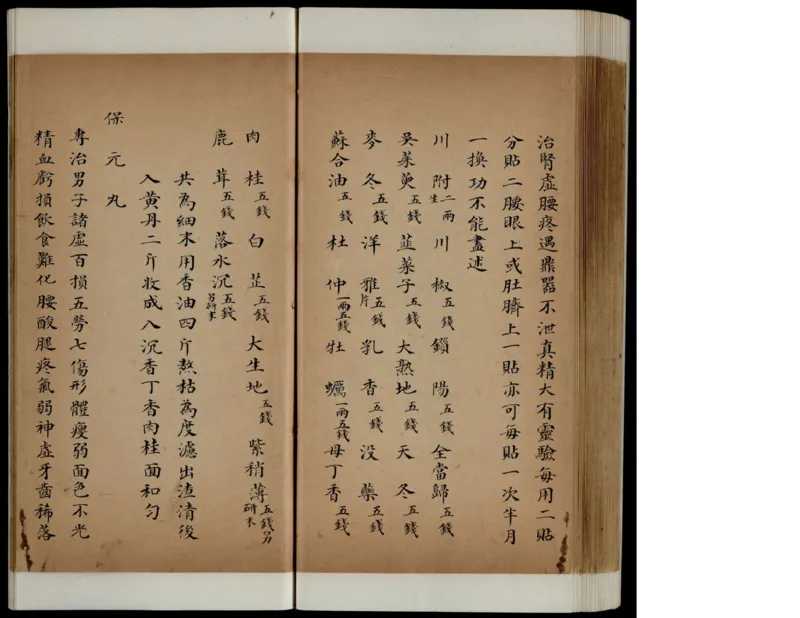 治腎虛腰疼遇鼎器不泄真精大有靈驗每用二貼
分貼二腰眼上或肚臍上一貼亦可每貼一次半月
一換功不能盡述
川附二兩生 川椒五錢 鎖陽五錢 全當歸五錢
吳茱萸五錢 韭菜子五錢 大熟地五錢 天冬五錢
麥冬五錢 洋雅片五錢 乳香五錢 没藥五錢
蘇合油五錢 杜仲一兩五錢 牡蠣一兩五錢 母丁香五錢
肉桂五錢 白芷五錢 大生地五錢 紫稍薄五錢另研末
鹿茸五錢 落水沉五錢另研末
共為細末用香油四斤熬枯為度濾出渣清後
入黄丹二斤收成入沉香丁香肉桂面和勻
保元丸
專治男子諸虛百損五勞七傷形體瘦弱面色不光
精血虧損飲食難化腰酸腿疼氣弱神虛牙齒稀落